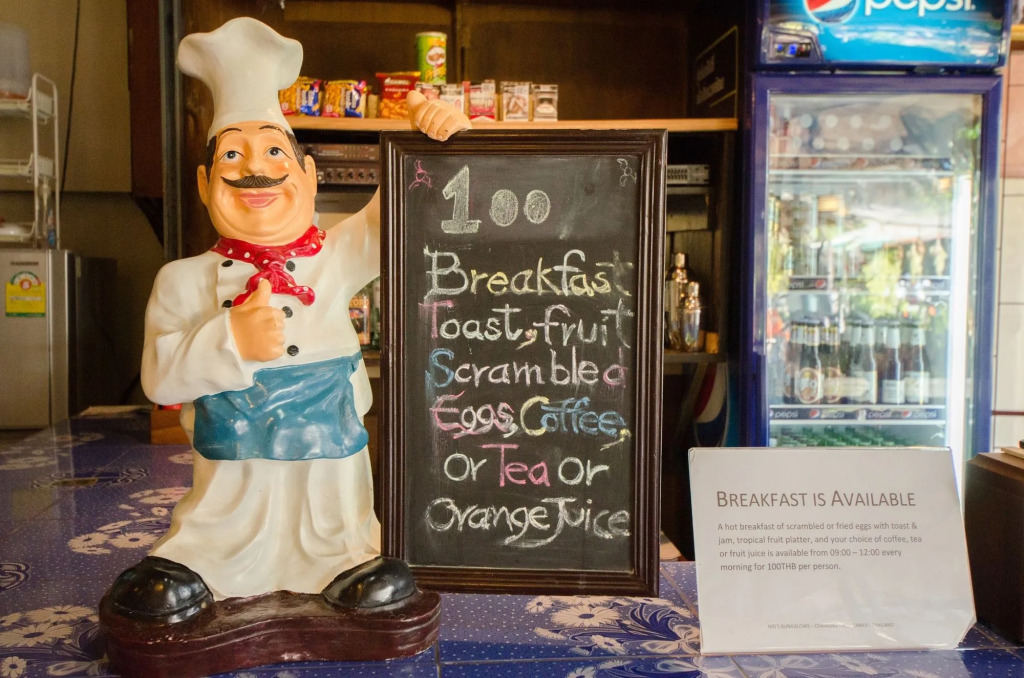 pepsi
100
Breakfast
Toast, fruit
Scrambled
Eggs, Coffee,
or Tea or
Orange Juice
pepsi
BREAKFAST IS AVAILABLE
A hot breakfast of scrambled or fried eggs with toast &
jam, tropical fruit platter, and your choice of coffee, tea
or fruit juice is available from 09:00 – 12:00 every
morning for 100THB per person.